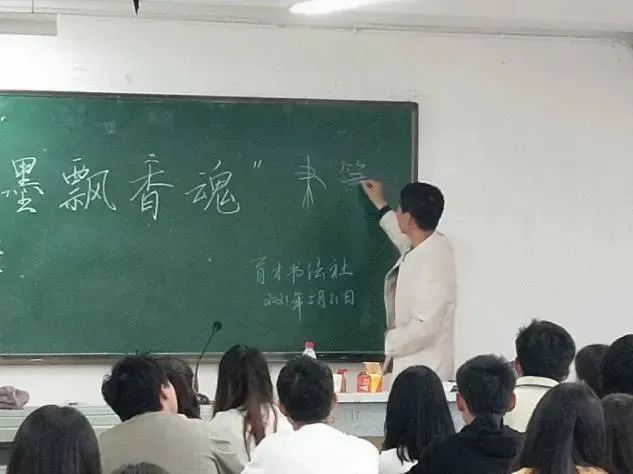 墨飘香魂"
育才书法社
2021年5月21日